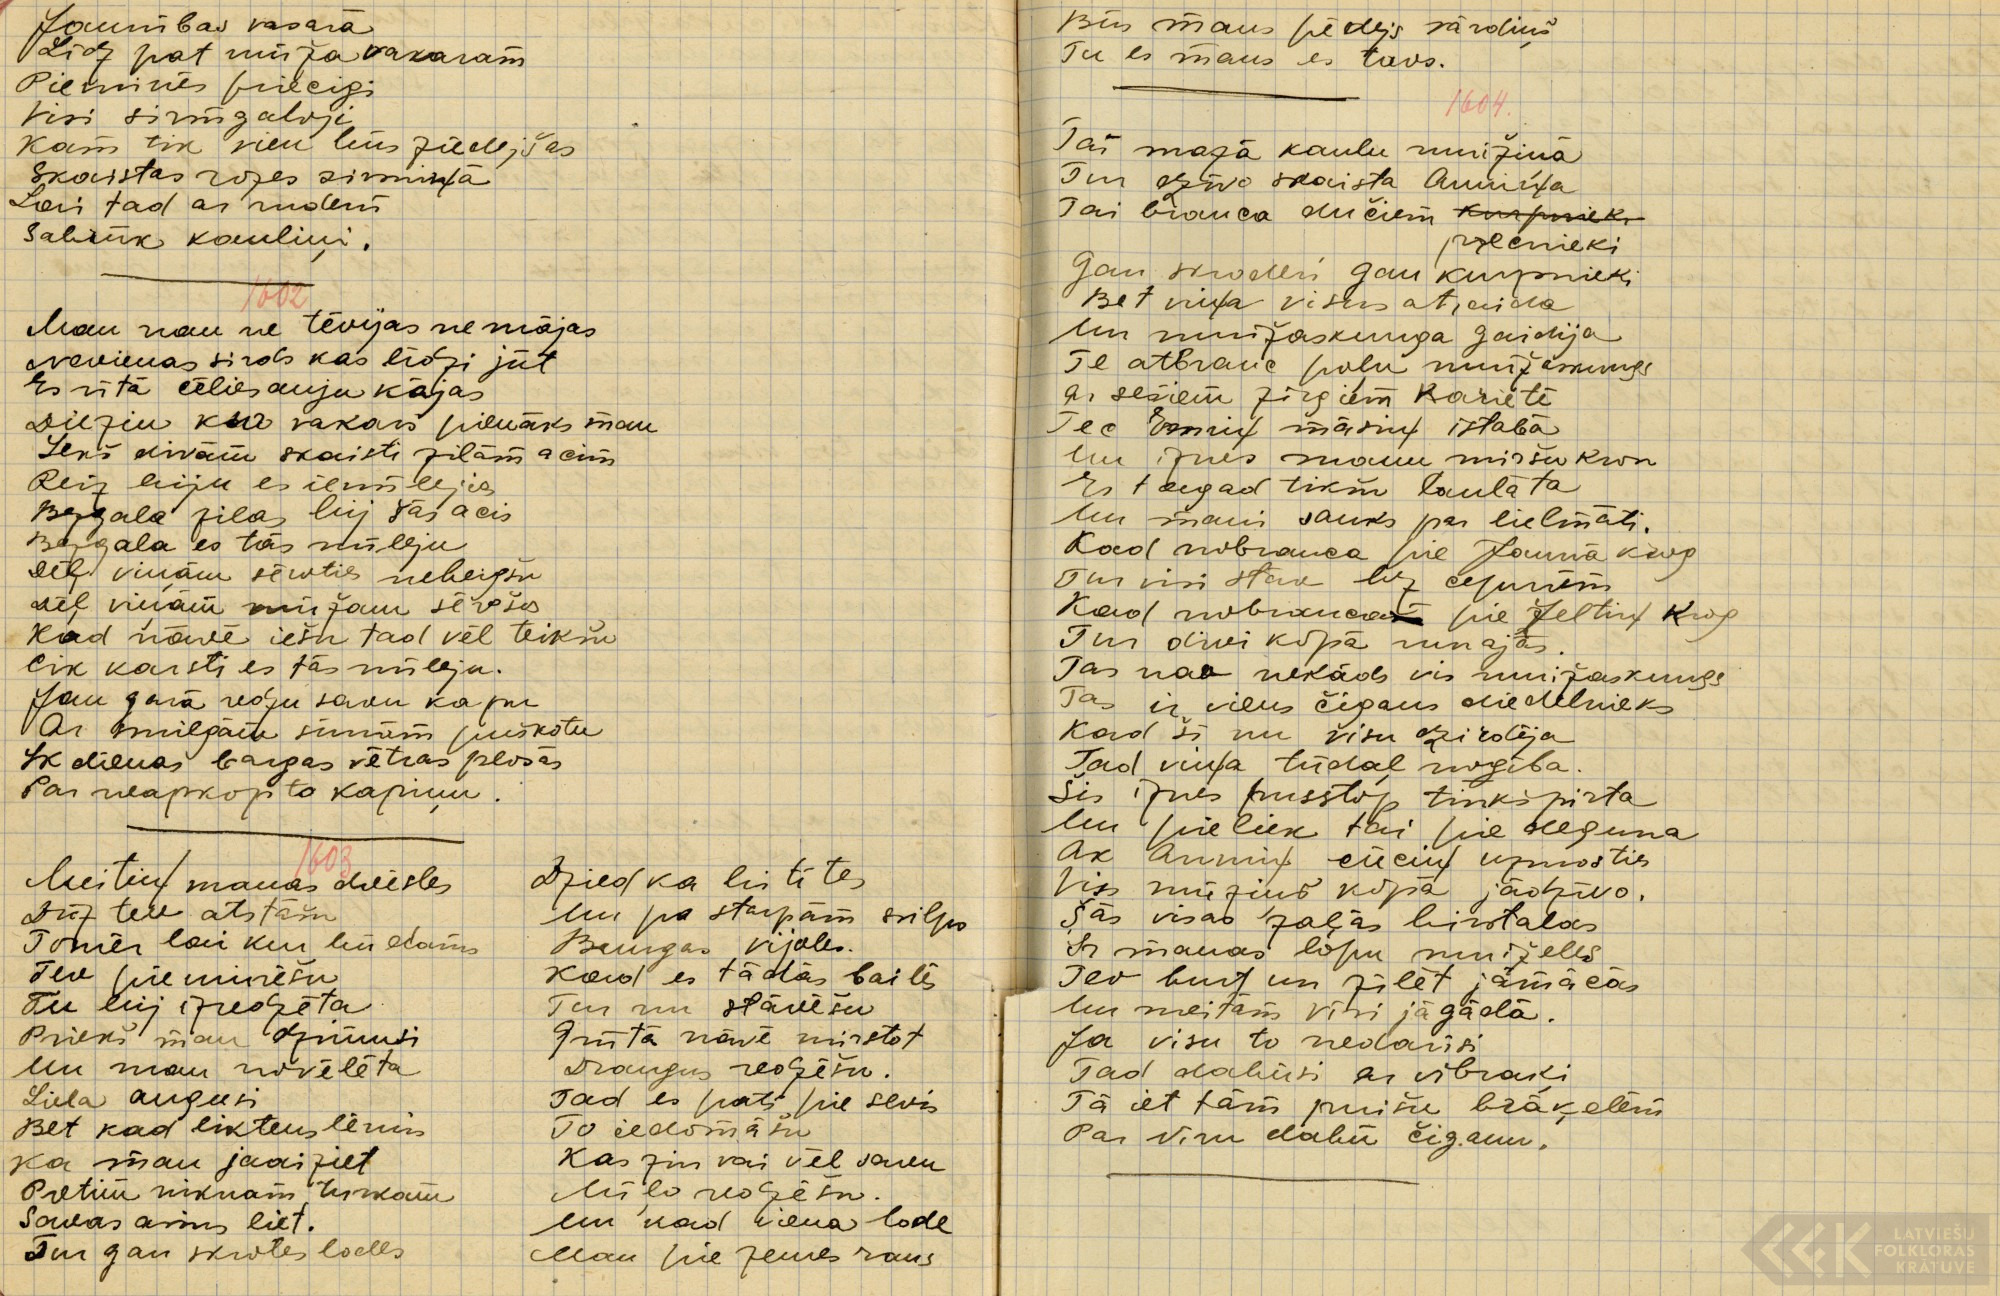 Jaunības vasarā
Līdz pat mūža vakaram
Pieminēs priecīgi
Visi sirmgalvji
Kam tik vien būs ziedējšas
Skaistas rozes sirmiņā
Lai tad ar rudeni
Sabrūk kauliņi.
1602
Man nau ne tēvijas ne mājas
Nevienas sirds kas līdzi jūt
Es rītā cēlies auju kājas
Diezin kur vakars pienāks man
Šekš divām skaisti zilām acīm
Reiz biju es iemīlejies
Bezgala zilas bij šās acis
Bezgala es tās mīleju
Dēļ viņām sēroties nebeigšu
Dēļ viņām mūžam sērošos
Kad nāvē iešu tad vēl teikšu
Cik karsti es tās mīleju.
Jau garā redzu savu kapu
Ar smilgām sūnām puškotu
Ik dienas bargas vētras plosās
Par neapkopto kapiņu.
1603
Meitiņ manas dvēsles
Drīz tev atstāšu
Tomēr lai kur būdams
Tev pieminēšu
Tu bij izredzēta
Priekš man dzimusi
Un man novēlēta
Liela augusi
Bet kad liktens lēmis
Ka man jaaiziet
Pretim niknam turkam
Savas asins liet.
Tur gan skrotes lodes
Dzied ka lištites
Un pa starpām svilpo
Bungas vijoles.
Kad es tādās bailēs
Tur nu stāvēšu
Grūtā nāvē mirstot
Draugus redzēšu.
Tad es pats pie sevis
To iedomāšu
Kas zin vai vēl savu
Mīļo redzēšu.
Un kad viena lode
Man pie zemes raus
Būs mans pēdejs vārdiņš
Tu es mans es tavs.
1604.
Tai mazā kaulu muižiņā
Tur dzīvo skaista Anniņa
Tai brauca dučiem kurpnieki
precnieki
Gan skroderi gan kurpnieki
Bet viņa visus atraida
Un muižaskunga gaidija
Te atbrauc poļu muižaskungs
Ar sešiem zirgiem karietē
Tec Emiņ māsiņ istabā
Un iznes manu miršu kron
Es tagad tikšu laulāta
Un mani sauks par lielmāti.
Kad nobrauca pie Jauna krog
Tur visi stāv bez cepurēm
Kad nobrauca pie Zeltiņ krog
Tur divi kopā runajās.
Tas nav nekāds vis muižaskungs
Tas ir viens čigans diedelnieks
Kad šī nu visu dzirdēja
Tad viņa tūdaļ noģība.
Šis iznes pusstop tinkšpirta
Un pieliek tai pie deguna
Ak Anniņ cūciņ uzmosties
Viss mūžiņš kopā jādzīvo.
Šās visas zaļās birstalas
Ir manas lopu muiželes
Tev burt un zīlēt jāmācās
Un meitām vīri jāgādā.
Ja visu to nedarīsi
Tad dabūsi ar vībraki
Tā iet tām puišu brāķelēm
Par vīru dabū čiganu.
LATVIEŠU
FOLKLORAS
KRĀTUVE